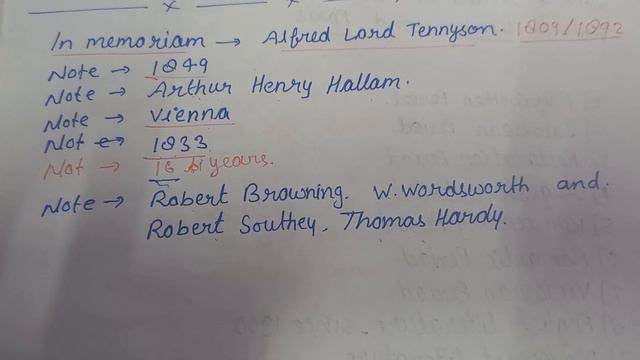 In memoriam → Alfred Lord Tennyson. 1809/1892
Note → 1849
Note → Arthur Henry Hallam.
Note → Vienna
Not → 1833
Not → 16 years.
Note → Robert Browning. W. Wordsworth and.
Robert Southey, Thomas Hardy.